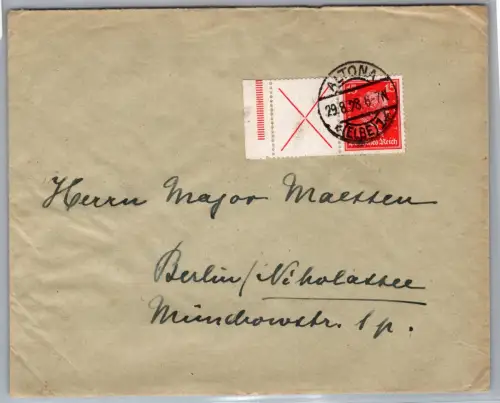 ALTONA
29.8.28.6-7N
(ELBE)1
Deutsches Reich
Herrn Major Maessen
Berlin/Nikolassee
Münchowstr. 1 p.